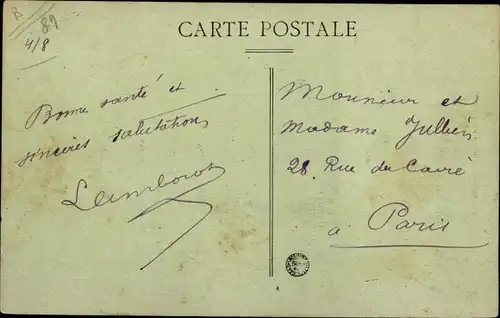 B
89
4/8
CARTE POSTALE
Bonne santé et
sincères salutations
Monsieur et
Madame Jullien
28 Rue du Caire
a Paris